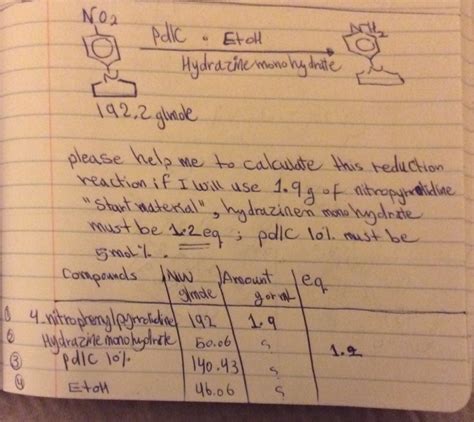 NO2
Pd/C . EtOH
Hydrazine monohydrate
NH2
192.2 g/mole
please help me to calculate this reduction
reaction if I will use 1.9g of nitropyrrolidine
"Start material", hydrazinen monohydrate
must be 1.2 eq ; pd/C 10% must be
5mol%.
Compounds MW g/mole Amount g or ml eq
① 4-nitrophenylpyrrolidine 192 1.9
② Hydrazine monohydrate 50.06 ς 1.2
③ pd/C 10% 140.43 ς
④ EtOH 46.06 ς